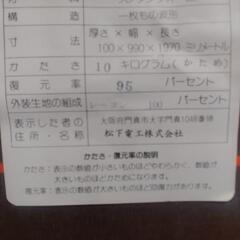 構造 一枚もの波形
寸法 厚さ×幅×長さ
100×990×1970ミリメートル
かたさ 10 キログラム(かため)
復元率 95 パーセント
外装生地の組成 レーヨン 100 パーセント
表示した者の 大阪府門真市大字門真1048番地
住所・名称 松下電工株式会社
かたさ・復元率の説明
かたさ:表示の数値が小さいものほどやわらかく、数値が
大きいものほどかためになります。
復元率:表示の数値が大きいものほど回復力があります。